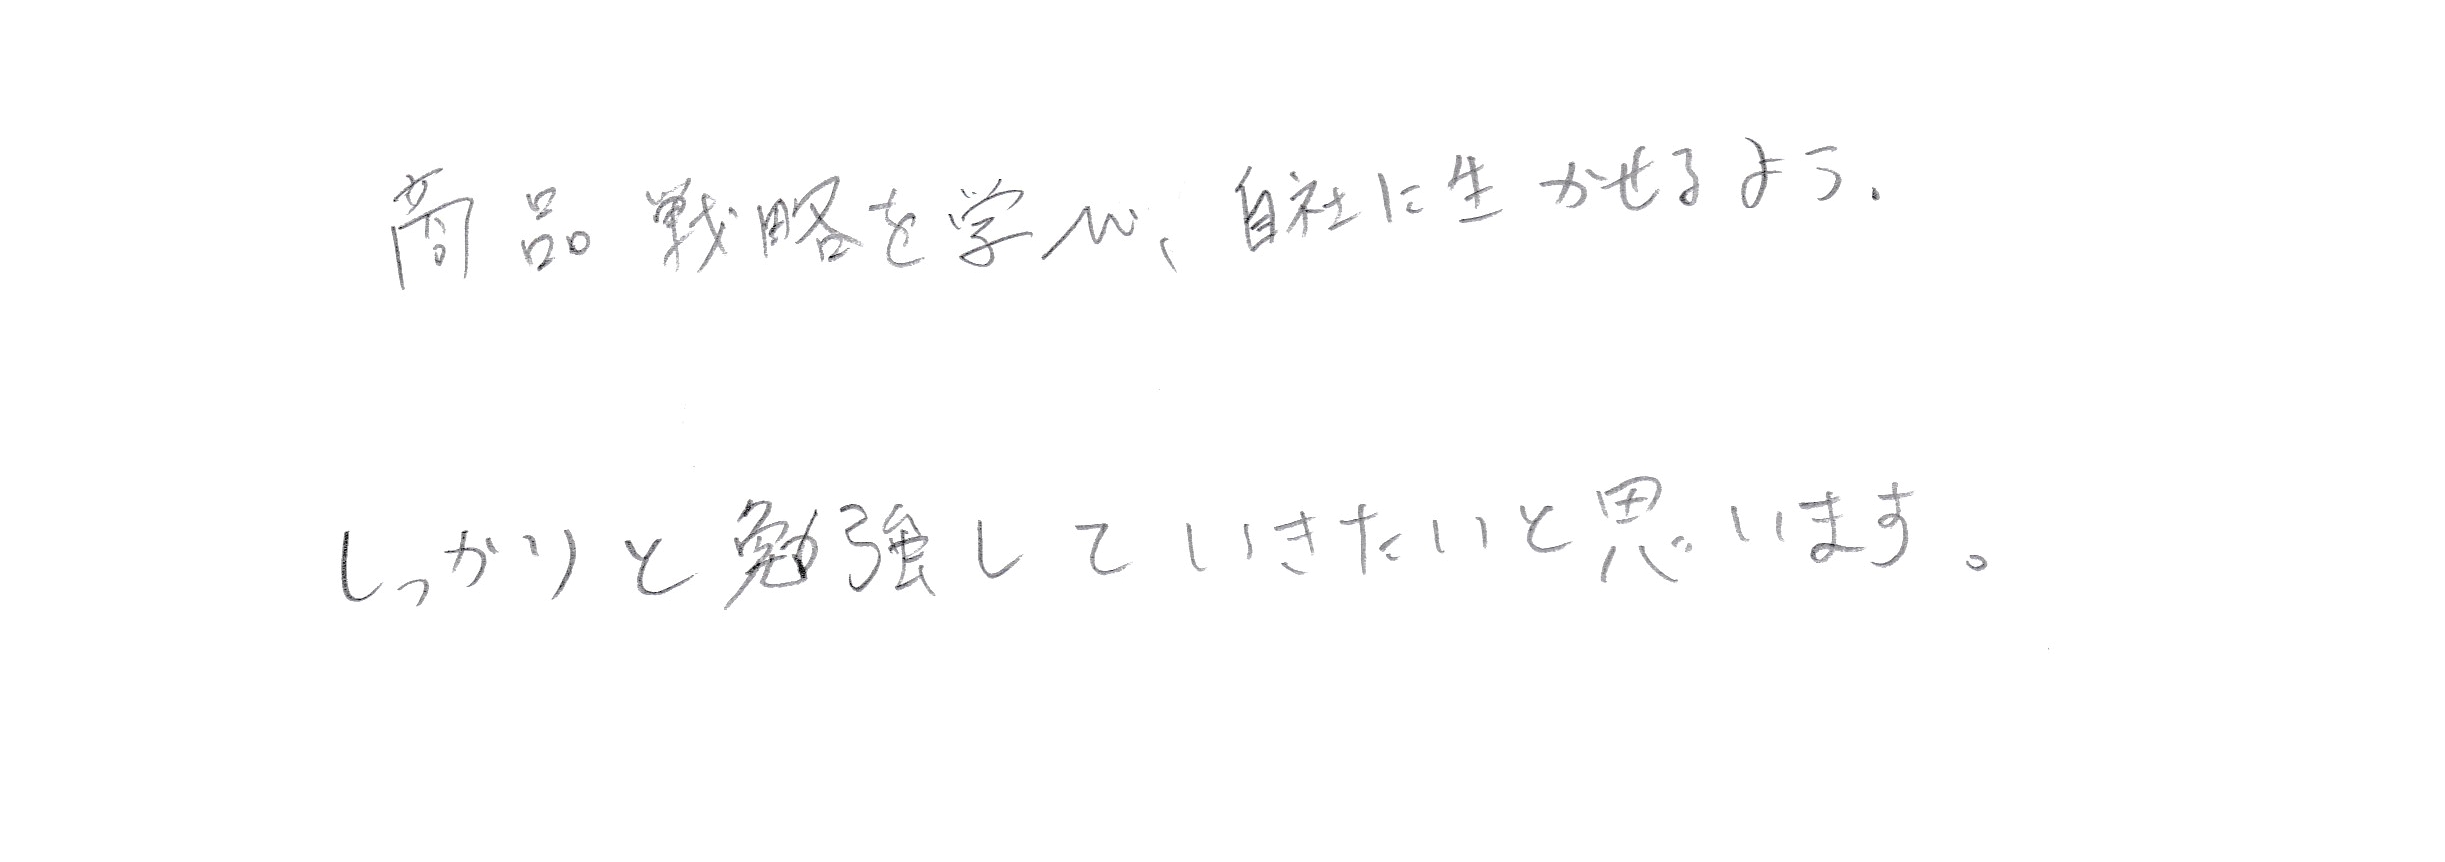 商品戦略を学び、自社に生かせるよう、
しっかりと勉強していきたいと思います。